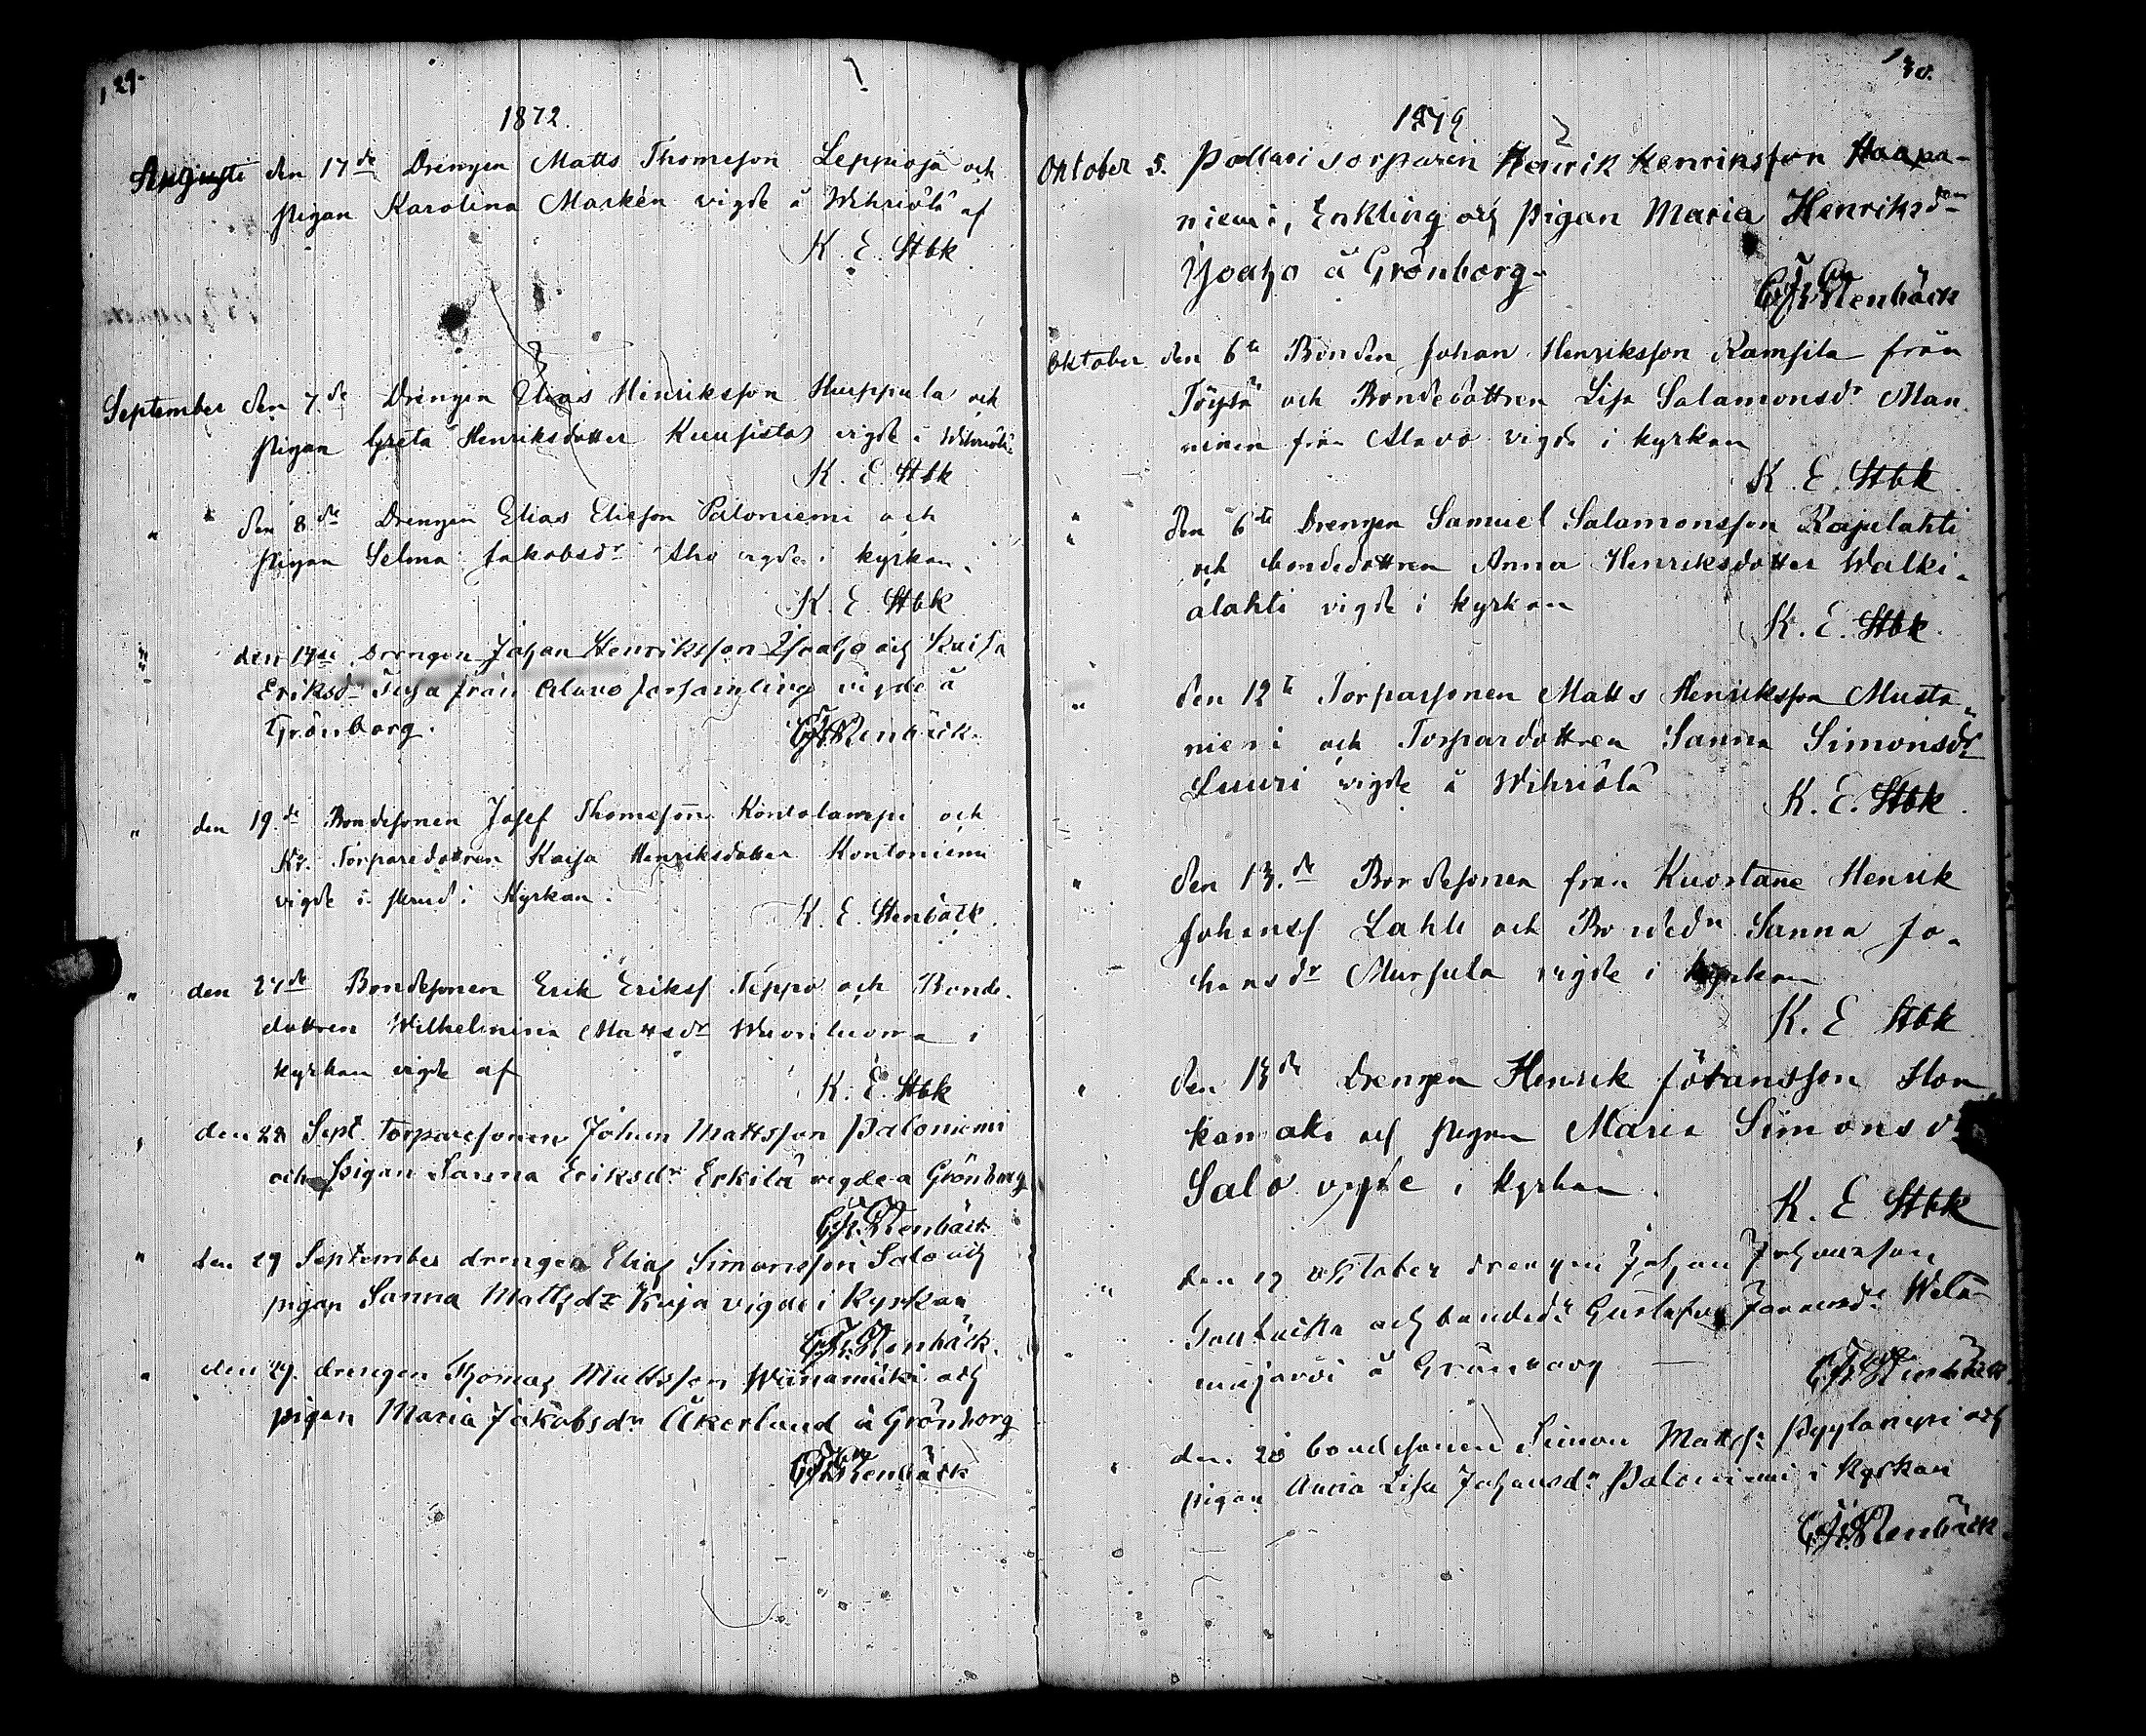 129.
1872.
Augusti den 17de Drengen Matts Thomeson Leppioja och
pigan Karolina Markén vigde å Wihriölä af
K. E. Stbk
September den 7.de Drengen Elias Henriksson Huppula och
pigan Greta Henriksdotter Kuusisto vigde å Wihriölä
K. E. Stbk
" den 8.de Drengen Elias Elieson Paloniemi och
pigan Selma Jakobsdr Aho vigde i kyrkan.
K. E. Stbk
den 14de Drengen Johan Henriksson Isoaho och Kaisa
Eriksdr från Alavo församling vigde å
Grönborg.
Stenbäck.
" den 19.de Bondesonen Josef Thomeson Kontolampi och
Torparedottren Kaisa Henriksdotter Kontoniemi
vigde i Kyrkan.
K. E. Stenbäck.
" den 27de Bondesonen Erik Erikss Seppo och Bonde-
dottren Wilhelmina Mattsdr Wuoriluoma i
kyrkan vigde af
K. E. Stbk
" den 28 Sept. torparesonen Johan Mattsson Paloniemi
och Pigan Sanna Eriksdr Erkilä vigde å Grönborg
Stenbäck.
" den 29 September drengen Elias Simonsson Salo och
pigan Sanna Mattsdr Kuja vigde i Kyrkan
Stenbäck.
" den 29. drengen Thomas Mattsson Wäinämäki och
pigan Maria Jakobsdr Åkerlund å Grönborg
Stenbäck
130.
1872
Oktober 5. Pallari torparen Henrik Henriksson Haapa-
niemi, Enkling och pigan Maria Henriksdr
Isoaho å Grönborg.
Stenbäck
Oktober den 6te Bonden Johan Henriksson Ramsila från
Töysä och Bondedottren Lisa Salamonsdr Man
ninen från Alavo vigde i kyrkan
K. E. Stbk
" den 6te Drengen Samuel Salamonsson Rajulahti
och bondedottren Anna Henriksdotter Walki-
alahti vigde i kyrkan
K. E. Stbk.
" den 12te Torparsonen Matts Henriksson Musta-
niemi och Torpardottren Sanna Simonsdr
Luuri vigde å Wihriölä
K. E. Stbk.
" den 13.de Bondesonen från Kuortane Henrik
Johanss Lahti och Bondedn Sanna Jo-
hansdr Mursula vigde i kyrkan
K. E Stbk
" den 13de Drengen Henrik Johansson Hon
kamäki och pigan Maria Simonsdr
Salo vigde i kyrkan.
K. E Stbk
" den 19 oktober drengen Johan Johansson
och bondedr Gustafva Johansdr Wetä-
mäjärvi å Grönborg
Stenbäck
" den 20 bondesonen Simon Mattss: Pyylampi och
pigan Anna Lisa Johansdr Paloniemi i Kyrkan
Stenbäck.